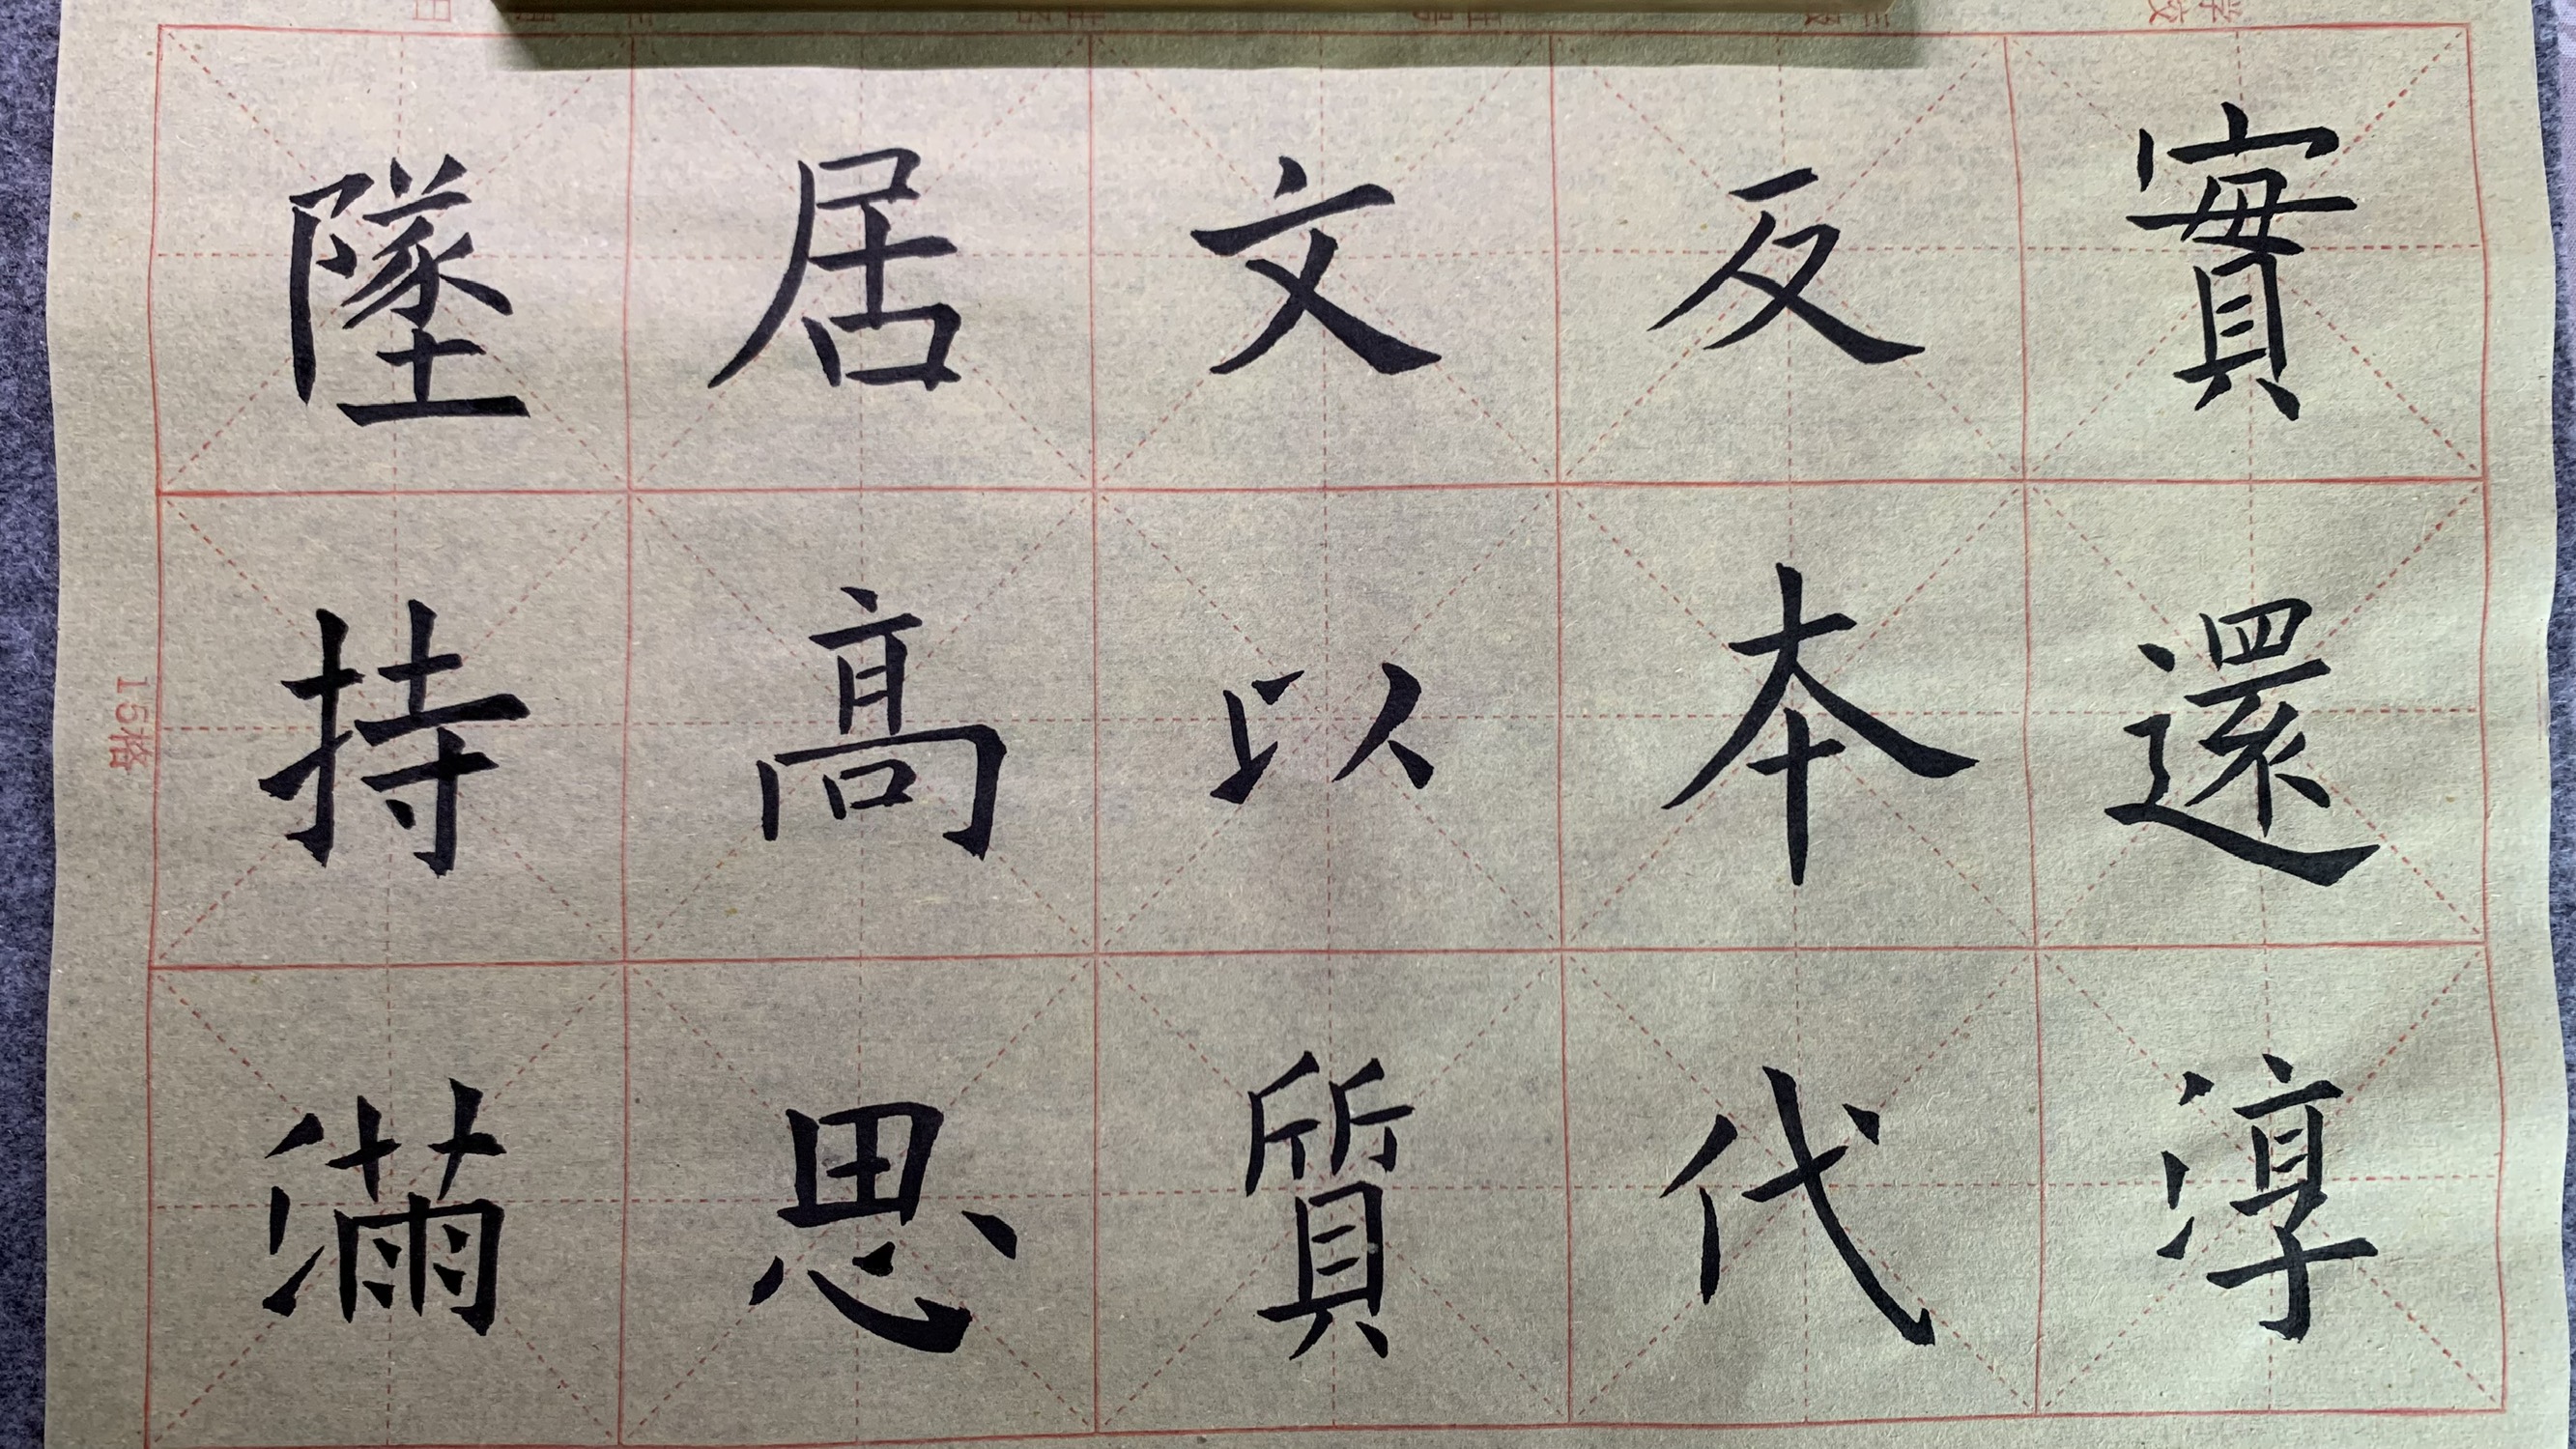 實還淳
反本代
文以質
居高思
墜持滿
15格